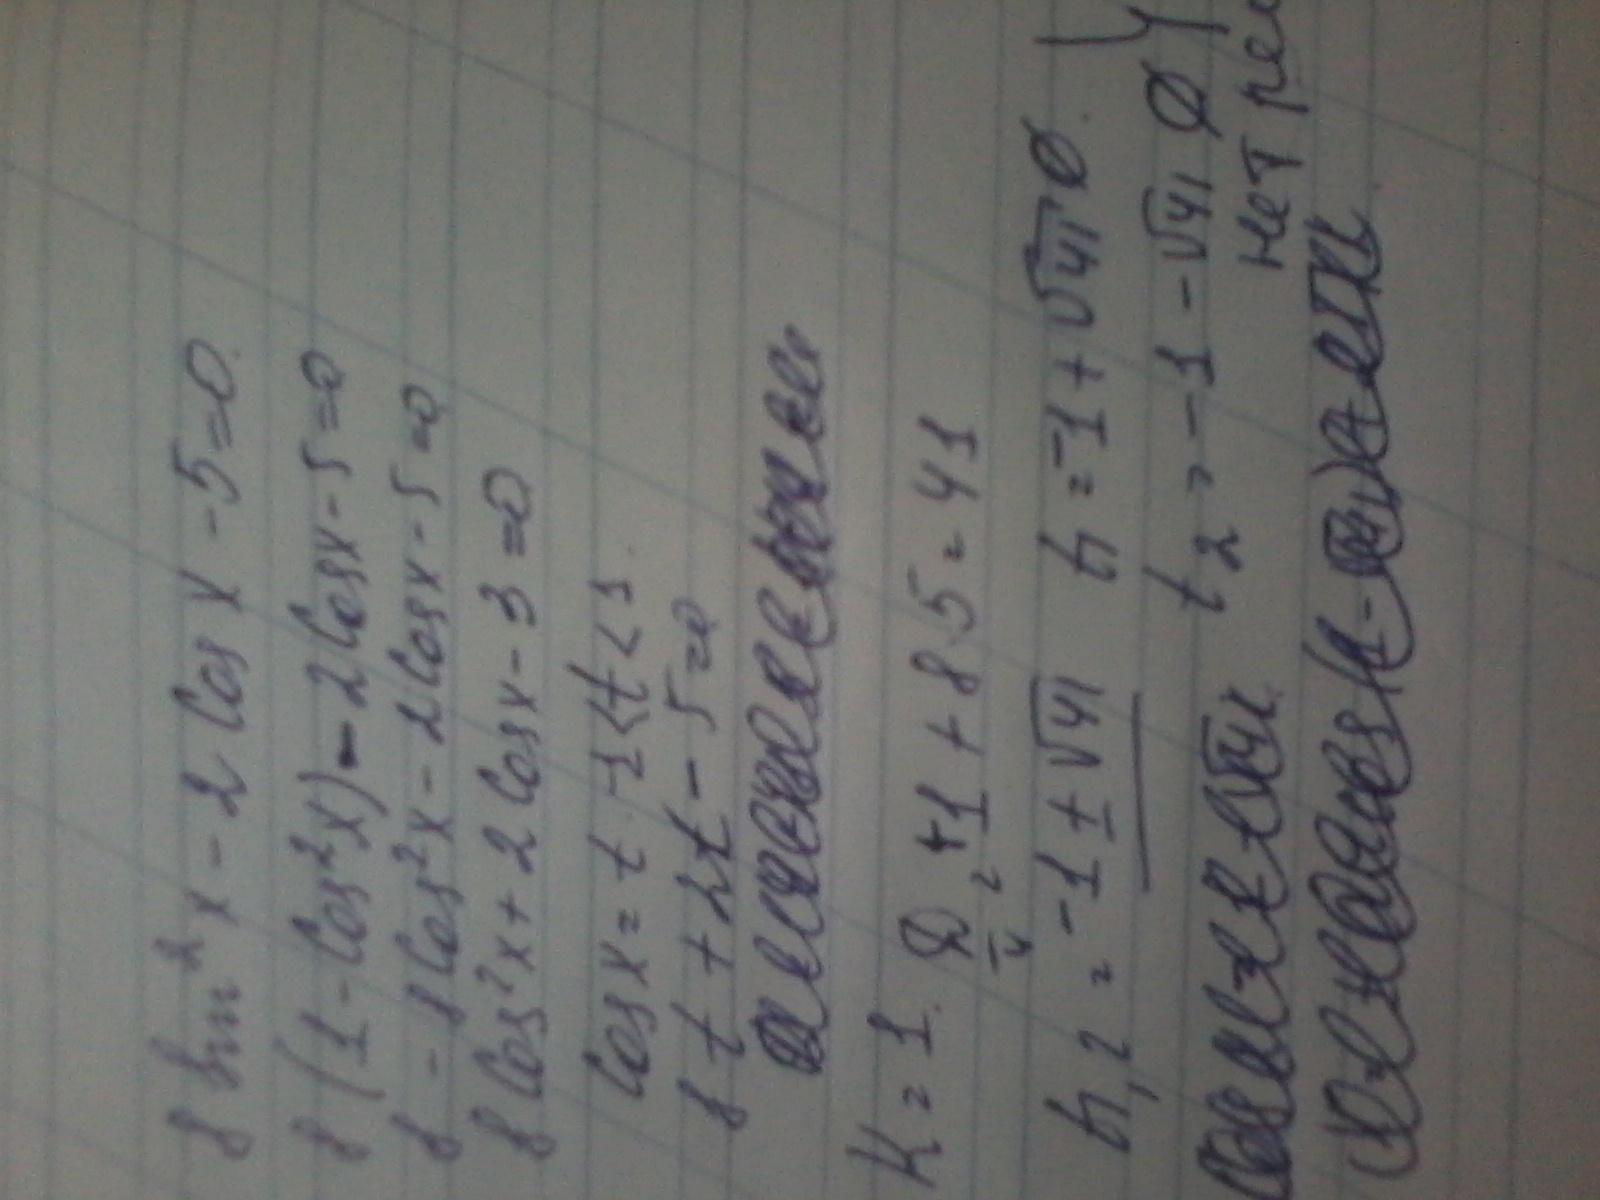 8 sin²x - 2 cos x - 5 = 0.
8 (1 - cos²x) - 2 cosx - 5 = 0
8 - 8 cos²x - 2 cosx - 5 = 0
8 cos²x + 2 cosx - 3 = 0
cos x = t -1 < t < 1.
8 t + 2t - 5 = 0
K = 1. D/4 = +1 + 8.5 = 41
t1,2 = -1 ± √41 t1 = -1 + √41 Ø.
t2 = -1 - √41 Ø
нет ре